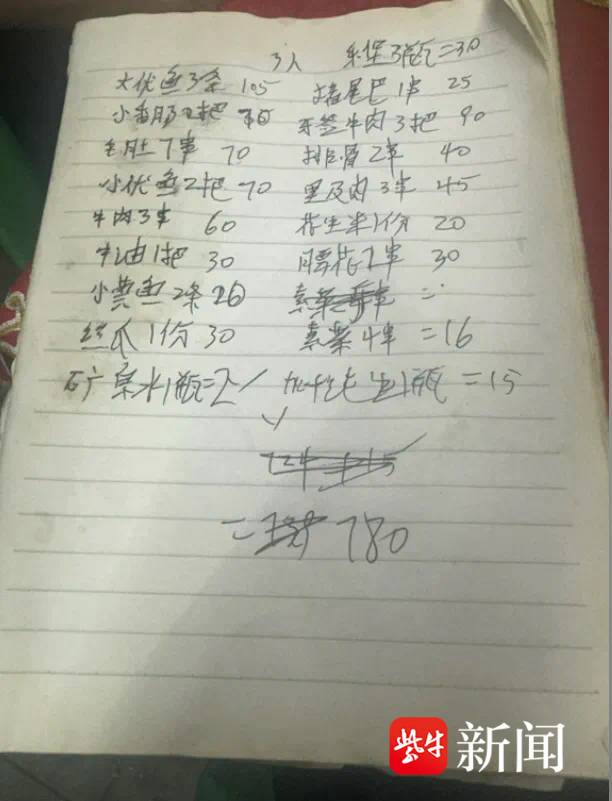 3人 乐堡3瓶=30
大优鱼3条 105 猪尾巴1串 25
小香肠2把 牙签牛肉3把 90
毛肚7串 70 排骨2串 40
小优鱼2把 70 里及肉3串 45
牛肉3串 60 花生米1份 20
牛油1把 30 腰花2串 30
小黄鱼2条 26
丝瓜1份 30 素菜4串 =16
矿泉水1瓶=2 1瓶 =15
= 780
紫牛新闻